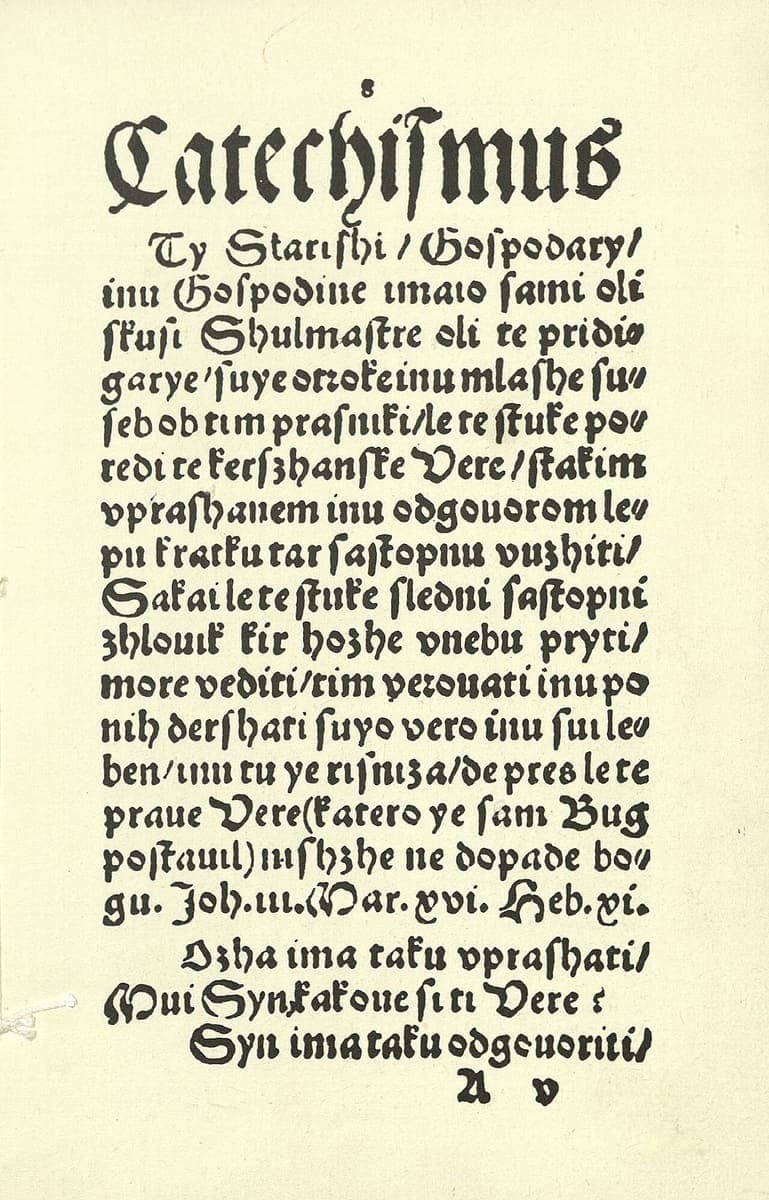 8
Catechiſmus
Ty Stariſhi / Goſpodary/
inu Goſpodine imaio ſami oli
ſkuſi Shulmaſtre oli te pridi⸗
garye/ſuye otroke inu mlaſhe ſu⸗
ſeb ob tim praſniki/le te ſtuke po⸗
redi te kerſzhanſke Vere/ſtakim
vpraſhanem inu odgouorom le⸗
pu kratku tar ſaſtopnu vuzhiti/
Sakai le te ſtuke ſledni ſaſtopni
zhlouik kir hozhe vnebu pryti/
more vediti/tim verouati inu po
nih derſhati ſuyo vero inu ſui le⸗
ben/inu tu ye riſniza/de pres le te
praue Vere(katero ye ſam Bug
poſtauil) niſhzhe ne dopade bo⸗
gu. Joh.iii.Mar.xvi. Heb.xi.
Ozha ima taku vpraſhati/
Mui Syn,kakoue ſi ti Vere ?
Syn ima taku odgouoriti/
A v